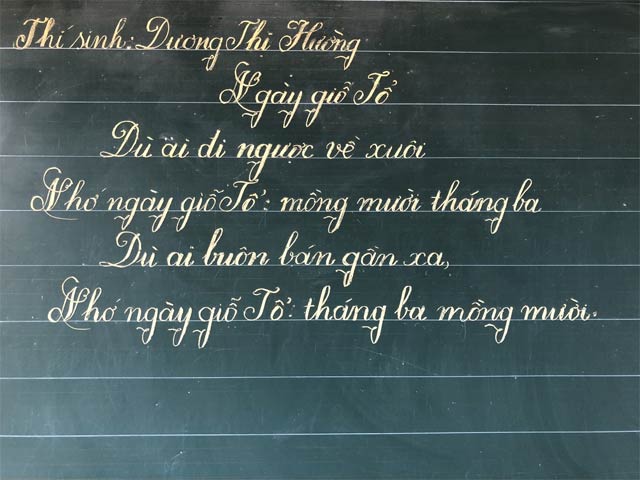 Thí sinh: Dương Thị Hường
Ngày giỗ Tổ
Dù ai đi ngược về xuôi
Nhớ ngày giỗ Tổ: mồng mười tháng ba
Dù ai buôn bán gần xa,
Nhớ ngày giỗ Tổ: tháng ba mồng mười.